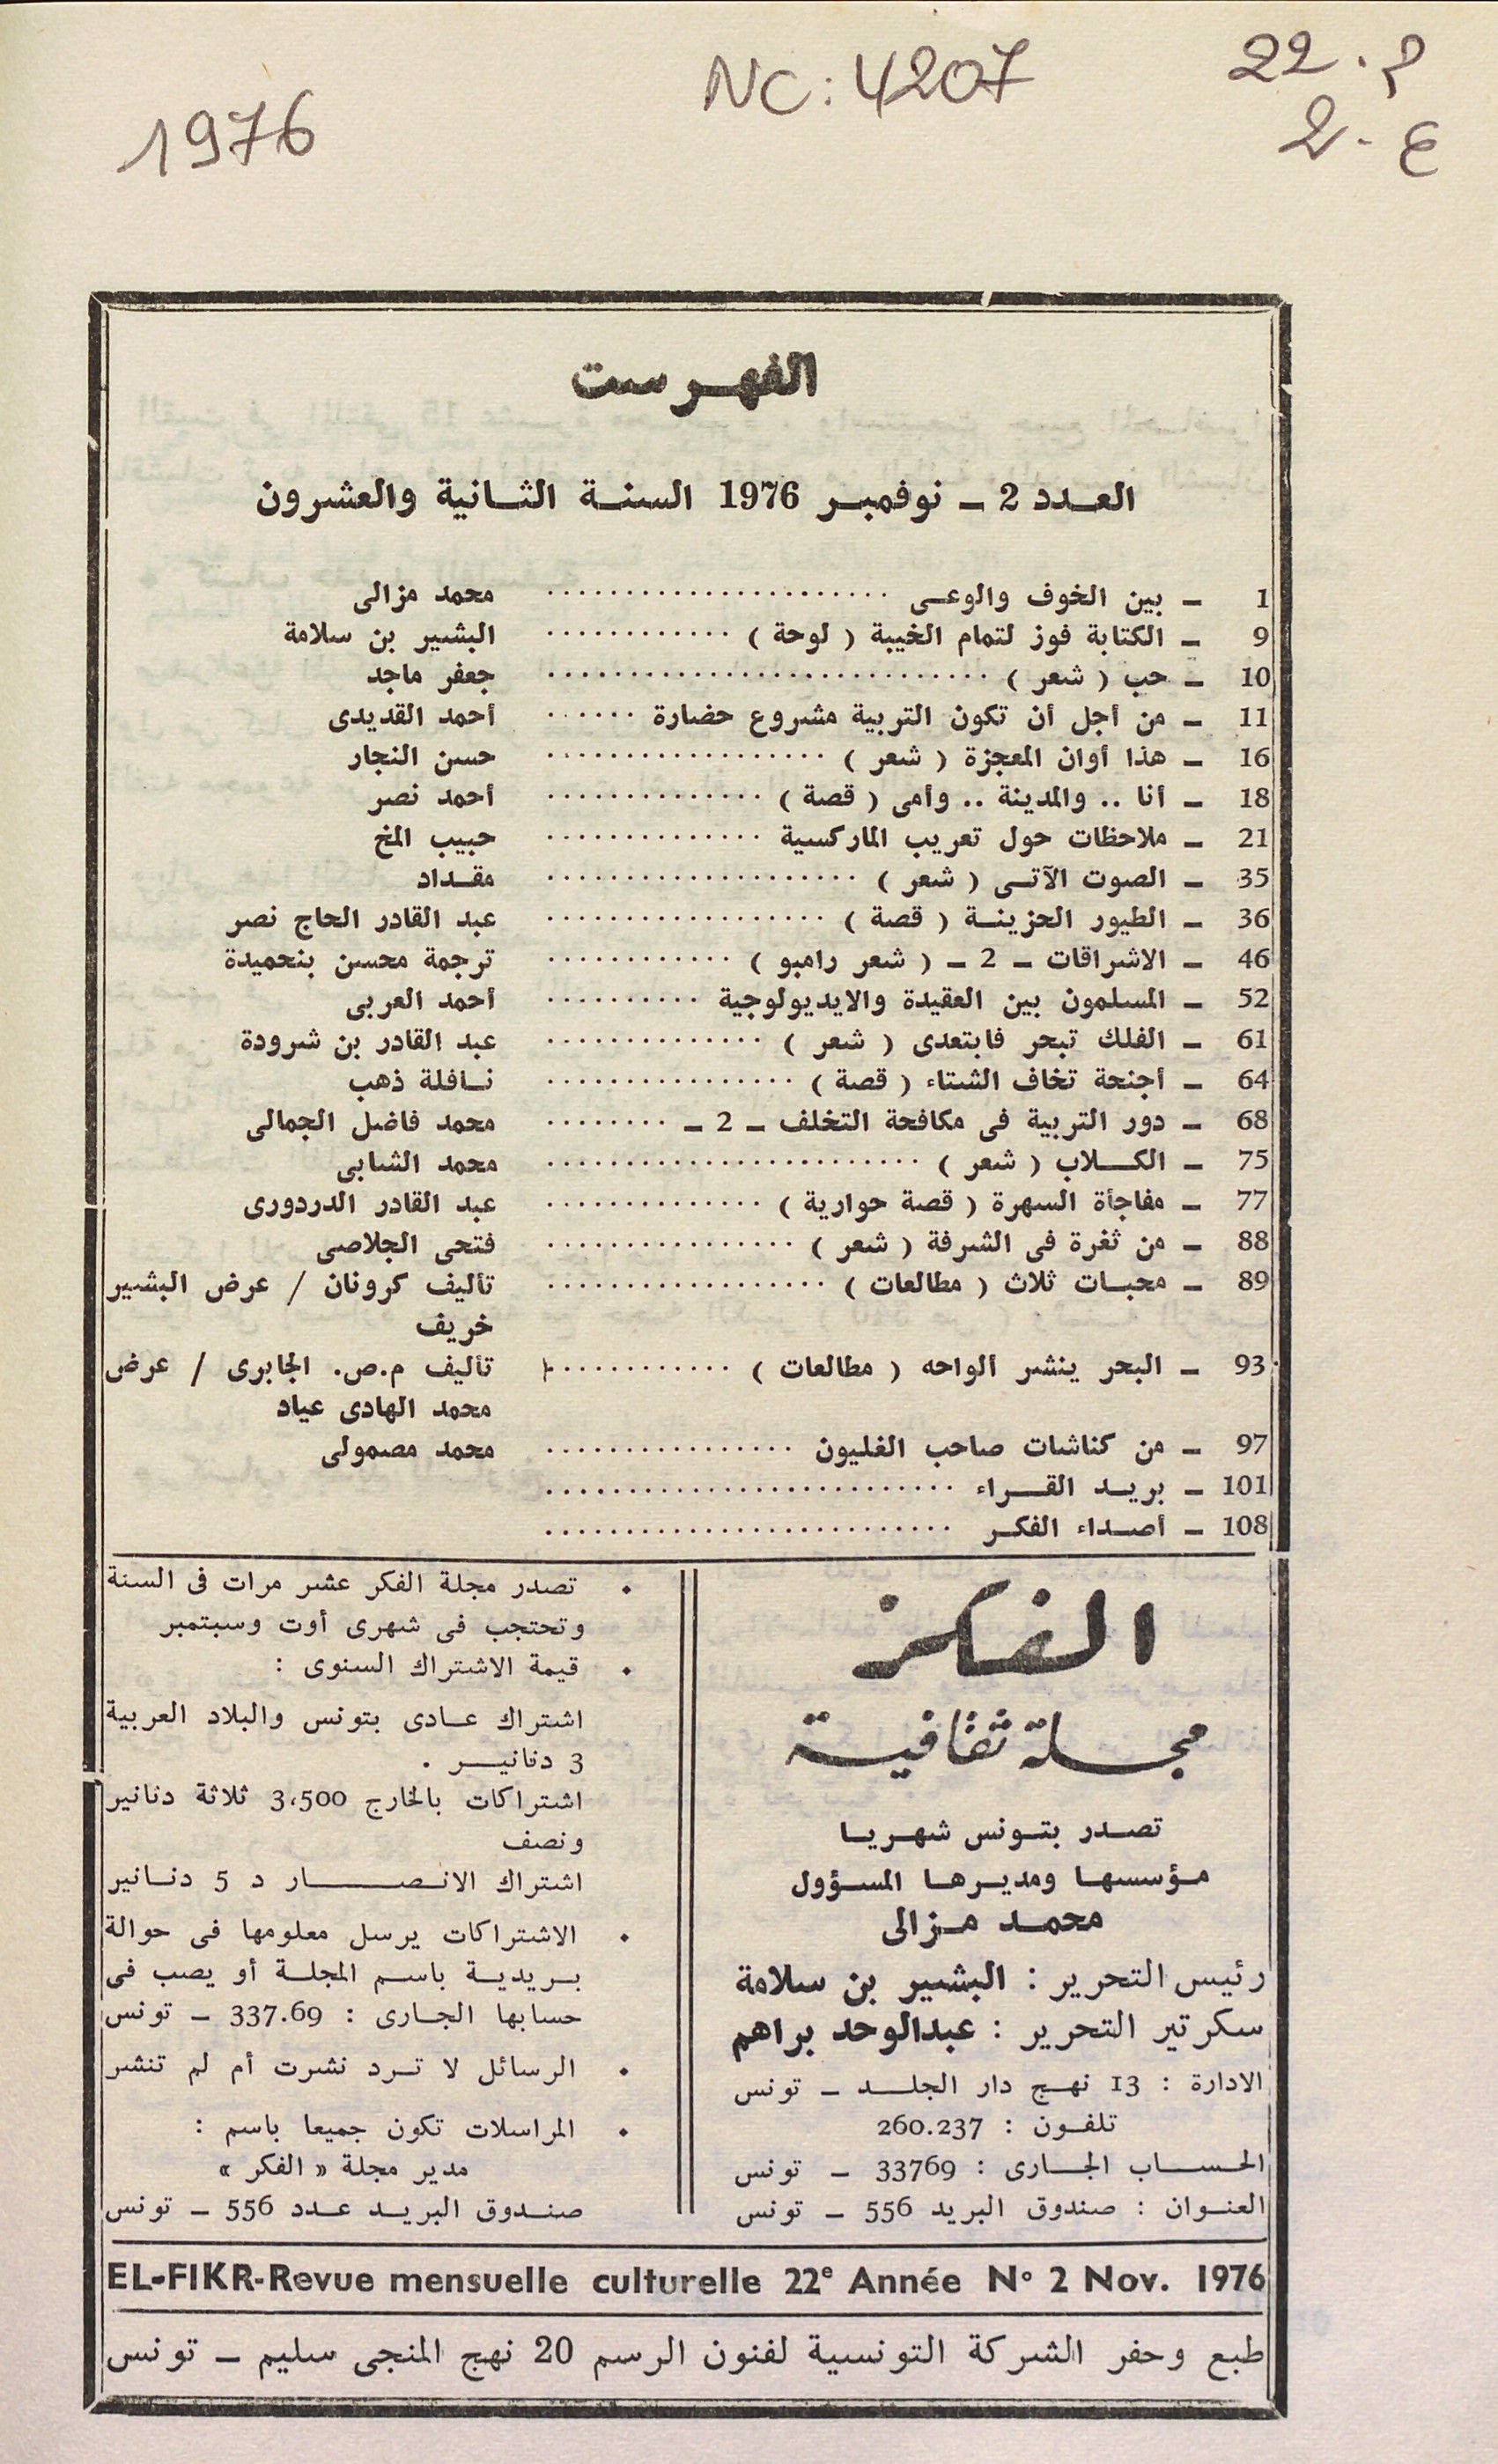 1976
NC: 4207
22 . م
2 . ع
الفهرست
العدد 2 ــ نوفمبر 1976 السنة الثانية والعشرون
1 ــ بين الخوف والوعى ........................ محمد مزالى
9 ــ الكتابة فوز لتمام الخيبة ( لوحة ) ............. البشير بن سلامة
10 ــ حب ( شعر ) ............................. جعفر ماجد
11 ــ من أجل أن تكون التربية مشروع حضارة ...... أحمد القديدى
16 ــ هذا أوان المعجزة ( شعر ) ................... حسن النجار
18 ــ أنا .. والمدينة .. وأمى ( قصة ) ............... أحمد نصر
21 ــ ملاحظات حول تعريب الماركسية ............... حبيب المخ
35 ــ الصوت الآتى ( شعر ) ..................... مقداد
36 ــ الطيور الحزينة ( قصة ) ................... عبد القادر الحاج نصر
46 ــ الاشراقات ــ 2 ــ ( شعر رامبو ) ............. ترجمة محسن بنحميدة
52 ــ المسلمون بين العقيدة والايديولوجية .......... أحمد العربى
61 ــ الفلك تبحر فابتعدى ( شعر ) ............... عبد القادر بن شرودة
64 ــ أجنحة تخاف الشتاء ( قصة ) ................. نافلة ذهب
68 ــ دور التربية فى مكافحة التخلف ــ 2 ــ ........ محمد فاضل الجمالى
75 ــ الكلاب ( شعر ) ......................... محمد الشابى
77 ــ مفاجأة السهرة ( قصة حوارية ) ............... عبد القادر الدردورى
88 ــ من ثغرة فى الشرفة ( شعر ) ................. فتحى الجلاصى
89 ــ محبات ثلاث ( مطالعات ) ................... تأليف كرونان / عرض البشير
خريف
93 ــ البحر ينشر ألواحه ( مطالعات ) ............. تأليف م.ص. الجابرى / عرض
محمد الهادى عياد
97 ــ من كناشات صاحب الغليون ................. محمد مصمولى
101 ــ بريد القراء ............................
108 ــ أصداء الفكر ............................
الفكر
مجلة ثقافية
تصدر بتونس شهريا
مؤسسها ومديرها المسؤول
محمد مزالى
رئيس التحرير : البشير بن سلامة
سكرتير التحرير : عبدالوحد براهم
الادارة : 13 نهج دار الجلد ــ تونس
تلفون : 260.237
الحساب الجارى : 33769 ــ تونس
العنوان : صندوق البريد 556 ــ تونس
• تصدر مجلة الفكر عشر مرات فى السنة
وتحتجب فى شهرى أوت وسبتمبر
• قيمة الاشتراك السنوى :
اشتراك عادى بتونس والبلاد العربية
3 دنانير .
اشتراكات بالخارج 3،500 ثلاثة دنانير
ونصف
اشتراك الانصار د 5 دنانير
• الاشتراكات يرسل معلومها فى حوالة
بريدية باسم المجلة أو يصب فى
حسابها الجارى : 337.69 ــ تونس
• الرسائل لا ترد نشرت أم لم تنشر
• المراسلات تكون جميعا باسم :
مدير مجلة « الفكر »
صندوق البريد عدد 556 ــ تونس
EL-FIKR-Revue mensuelle culturelle 22e Année N° 2 Nov. 1976
طبع وحفر الشركة التونسية لفنون الرسم 20 نهج المنجى سليم ــ تونس